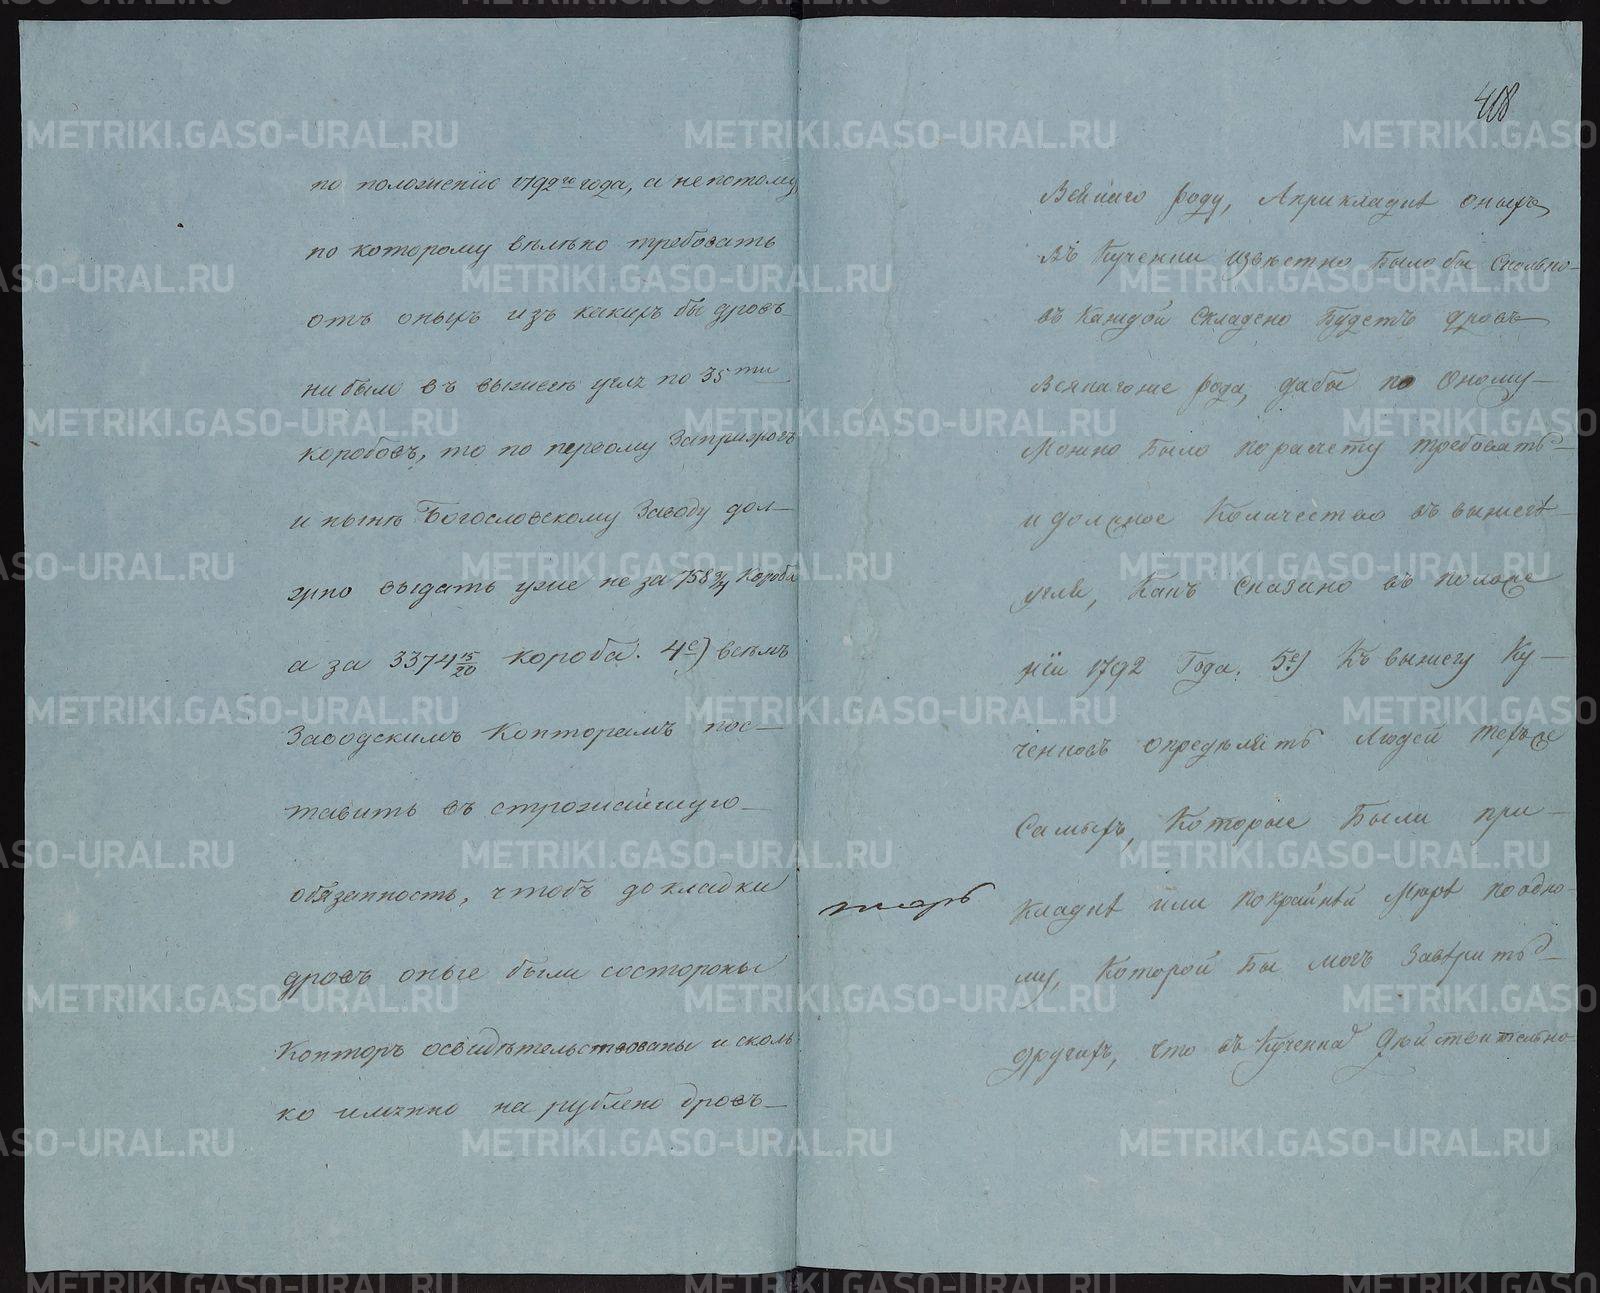 по положенію 1792го года, а не потому
по которому вѣлѣно требовать
отъ оныхъ изъ какихъ бы дровъ
ни было въ выжегѣ угля по 35ти
коробовъ, то по первому
и нынѣ Богословскому Заводу дол—
жно выдать уже не за 758 Короба
а за 3374 15/20 короба. 4е) всѣмъ
Заводскимъ Конторамъ пос—
тавить въ строжайшую—
обязанность, чтобъ докладки
дровъ оные были состороны
Конторъ освидѣтельствованы и сколь
ко имянно на рублено дровъ—
408
Всякаго роду, А прикладкѣ оныхъ
въ Кученки извѣстно Было бы Сколько—
въ Каждой Складено Будетъ дровъ—
Всякагоже рода, дабы по Оному—
Можно Было по расчету требовать—
и должное Количество въ выжегѣ—
угля, Какъ Сказано въ положе
ніи 1792 Года. 5е) Къ выжегу Ку—
ченковъ опредѣлять Людей техже
Самыхъ, Которые Были при—
Кладкѣ или По крайнѣй Мѣрѣ по одно—
му, Которой Бы могъ Завѣрить—
другихъ, что въ Кученкѣ Дѣйствительно